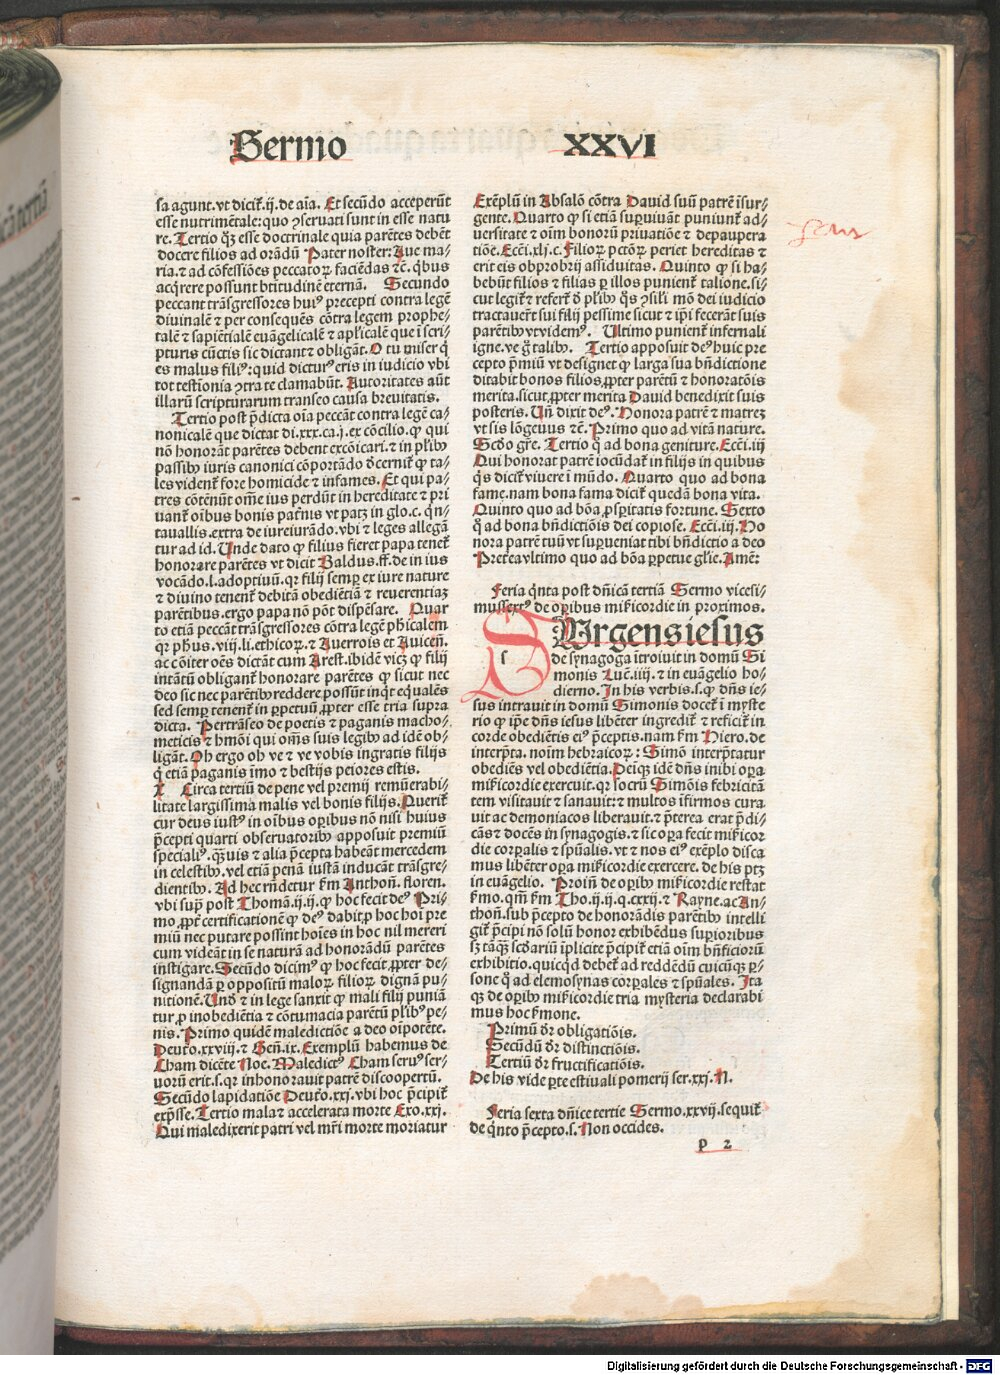 Sermo XXVI
sa agunt. vt dicit̄. ij. de aīa. Et secūdo acceperūt
esse nutrimētale: quo ꝯseruati sunt in esse natu
re. Tertio qꝫ esse doctrinale quia parētes debēt
docere filios ad orādū Pater noster: Aue ma⸗
ria. ⁊ ad cōfessiōes peccatoꝝ faciēdas ⁊c̄. q̄bus
acq̄rere possunt btitudinē eternā. Secundo
peccant trāsgressores huiꝰ precepti contra legē
diuinalē ⁊ per consequēs cōtra legem prophe⸗
talē ⁊ sapiētialē euāgelicalē ⁊ apl̄icalē que ī scri⸗
pturis cūctis sic dictant ⁊ obligāt. O tu miser q̄
es malus filiꝰ: quid dicturꝰ eris in iudicio vbi
tot testīonia ꝯtra te clamabūt. Autoritates aūt
illarū scripturarum transeo causa breuitatis.
Tertio post p̄dicta oīa peccāt contra legē ca⸗
nonicalē que dictat di. xxx. ca. j. ex cōcilio. ꝙ qui
nō honorāt parētes debent excōicari. ⁊ in pl̄ibꝰ
passibꝰ iuris canonici cōportādo d̄cernit̄ ꝙ ta⸗
les vident̄ fore homicide ⁊ infames. Et qui pa⸗
tres cōtēnūt om̄e ius perdūt in hereditate ⁊ pri
uant̄ oībus bonis pat̄nis vt patꝫ in glo. c. q̄n⸗
tauallis. extra de iureiurādo. vbi ⁊ leges allegā
tur ad id. Unde dato ꝙ filius fieret papa tenet̄
honorare parētes vt dicit Baldus. ff. de in ius
vocādo. l. adoptiuū. qr filij semper ex iure nature
⁊ diuino tenent̄ debitā obediētiā ⁊ reuerentiaꝫ
parētibus. ergo papa nō pōt dispēsare. Quar
to etiā peccāt trāsgressores cōtra legē ph̄icalem
qr ph̄us. viij. li. ethicoꝝ. ⁊ Auerrois et Auiceñ.
ac cōiter oēs dictāt cum Arest. ibidē vicꝫ ꝙ filij
intātū obligant̄ honorare parētes ꝙ sicut nec
deo sic nec parētibꝰ reddere possūt inq̄t eq̄ualēs
sed semp tenent̄ in ꝑpetuū ꝓpter esse tria supra
dicta. Pertrāseo de poetis ⁊ paganis macho⸗
meticis ⁊ hm̄oi qui om̄s suis legibꝰ ad idē ob⸗
ligāt. Oh ergo oh ve ⁊ ve vobis ingratis filijs
q̄ etiā paganis īmo ⁊ bestijs peiores estis.
X Circa tertiū de pene vel premij remūerabi⸗
litate largissima malis vel bonis filijs. Querit̄
cur deus iustꝰ in oībus operibus nō nisi huius
p̄cepti quarti obseruatoribꝰ apposuit premiū
speciali⁹. q̄ꝫuis ⁊ alia p̄cepta habeāt mercedem
in celestibꝰ. vel etiam penā iustā inducāt trāsgre⸗
dientibꝰ. Ad hec rn̄detur s̄m Anthoñ. floren.
vbi sup̄ post Thomā. ij. ij. ꝙ hoc fecit deꝰ Pri⸗
mo. ꝓpt̄ certificationē ꝙ deꝰ dabit ꝓ hoc hoī pre
miū nec putare possint hoīes in hoc nil mereri
cum videāt in se naturā ad honorādū parētes
instigare. Secūdo dicimꝰ ꝙ hoc fecit ꝓpter de⸗
signandā ꝑ oppositū maloꝝ filioꝝ dignā pu⸗
nitionē. Unde ⁊ in lege sanxit ꝙ mali filij puniā
tur ꝓ inobediētia ⁊ cōtumacia parētū pl̄ibꝰ pe⸗
nis. Primo quidē maledictiōe a deo oīpotēte.
Deutro. xxviij. ⁊ Geñ. ix. Exemplū habemus de
Cham dicēte Noe. Maledictꝰ Cham seruꝰ ser⸗
uorū erit. s. qr inhonorauit patrē discoopertū.
Secūdo lapidatiōe Deutro. xxj. vbi hoc p̄cipit̄
exp̄sse. Tertio mala ⁊ accelerata morte Exo. xxj.
Qui maledixerit patri vel mr̄i morte moriatur
Exēplū in Absalō cōtra Dauid suū patrē īsur⸗
gente. Quarto ꝙ si etiā suꝑuiuāt puniunt̄ ad⸗
uersitate ⁊ oīm bonorū priuatiōe ⁊ depaupera
tiōe. Ecci. xlj. c. Filioꝝ pctōꝝ periet hereditas ⁊
erit eis obprobrij assiduitas. Quinto ꝙ si ha⸗
bebūt filios ⁊ filias ꝑ illos punient̄ talione. si⸗
cut legit̄ ⁊ refert̄ d̄ pl̄ibꝰ q̄s ꝯsil̄i mō dei iudicio
tractauer̄t sui filij pessime sicut ⁊ ip̄i fecerāt suis
parētibꝰ vt videmꝰ. Ultimo punient̄ infernali
igne. ve g̃ talibꝰ. Tertio apposuit deꝰ huic pre
cepto p̄miū vt designet ꝙ larga sua bn̄dictione
ditabit bonos filios ꝓpter parētū ⁊ honoratōis
merita. sicut ꝓpter merita Dauid benedixit suis
posteris. Uñ dixit deꝰ. Honora patrē ⁊ matreꝫ
vt sis lōgeuus ⁊c̄. Primo quo ad vitā nature.
Scd̄o gr̄e. Tertio q̄ ad bona geniture. Ecci. iij
Qui honorat patrē iocūdat̄ in filijs in quibus
q̄s dicit̄ viuere ī mūdo. Quarto quo ad bona
fame. nam bona fama dicit̄ quedā bona vita.
Quinto quo ad bōa ꝓsꝑitatis fortune. Sexto
q̄ ad bona bn̄dictiōis dei copiose. Ecci. iij. Ho
nora patrē tuū vt suꝑueniat tibi bn̄dictio a deo
Pretea vltimo quo ad bōa ꝑpetue gl̄ie. Amē:
Feria q̄nta post dn̄icā tertiā Sermo vicesi⸗
mussextꝰ de oꝑibus mīcordie in proximos.
SUrgens iesus
de synagoga ītroiuit in domū Si
monis Luc̄. iiij. ⁊ in euāgelio ho⸗
dierno. In his verbis. s. ꝙ dn̄s ie⸗
sus intrauit in domū Simonis docet̄ ī myste
rio ꝙ ip̄e dn̄s iesus libēter ingredit̄ ⁊ reficit̄ in
corde obediētis eiꝰ p̄ceptis. nam s̄m Hiero. de
interp̄ta. noīm hebraicoꝝ: Simō interp̄tatur
obediēs vel obediētia. Deiqꝫ idē dn̄s inibi oꝑa
mīcordie exercuit. qr socrū Simōis febricitā
tem visitauit ⁊ sanauit: ⁊ multos īfirmos cura
uit ac demoniacos liberauit. ⁊ p̄terea erat p̄di⸗
cās ⁊ docēs in synagogis. ⁊ sic oꝑa fecit mīcor
die corꝑalis ⁊ sp̄ualis. vt ⁊ nos eiꝰ exēplo disca
mus libēter oꝑa mīcordie exercere. de his ptꝫ
in euāgelio. Proiñ de oꝑibꝰ mīcordie restat
s̄mo. qm̄ s̄m Tho. ij. ij. q. cxxij. ⁊ Rayne. ac An⸗
thoñ. sub p̄cepto de honorādis parētibꝰ intelli
git̄ p̄cipi nō solū honor exhibēdus suꝑioribus
sꝫ tāqꝫ scd̄ariū īplicite p̄cipit̄ etiā oīm bn̄ficiorū
exhibitio. quicq̄d debet̄ ad reddēdū cuicūqꝫ ꝑ⸗
sone q̄ ad elemosynas corꝑales ⁊ sp̄uales. Ita
qꝫ de oꝑibꝰ mīcordie tria mysteria declarabi
mus hoc s̄mone.
Primū d̄r obligatiōis.
Secūdū d̄r distinctiōis.
Tertiū d̄r fructificatiōis.
De his vide ꝑte estiuali pomerij ser. xxj. N.
Feria sexta dn̄ice tertie Sermo. xxvij. sequit̄
de q̄nto p̄cepto. s. Non occides.
p 2
Digitalisierung gefördert durch die Deutsche Forschungsgemeinschaft - DFG